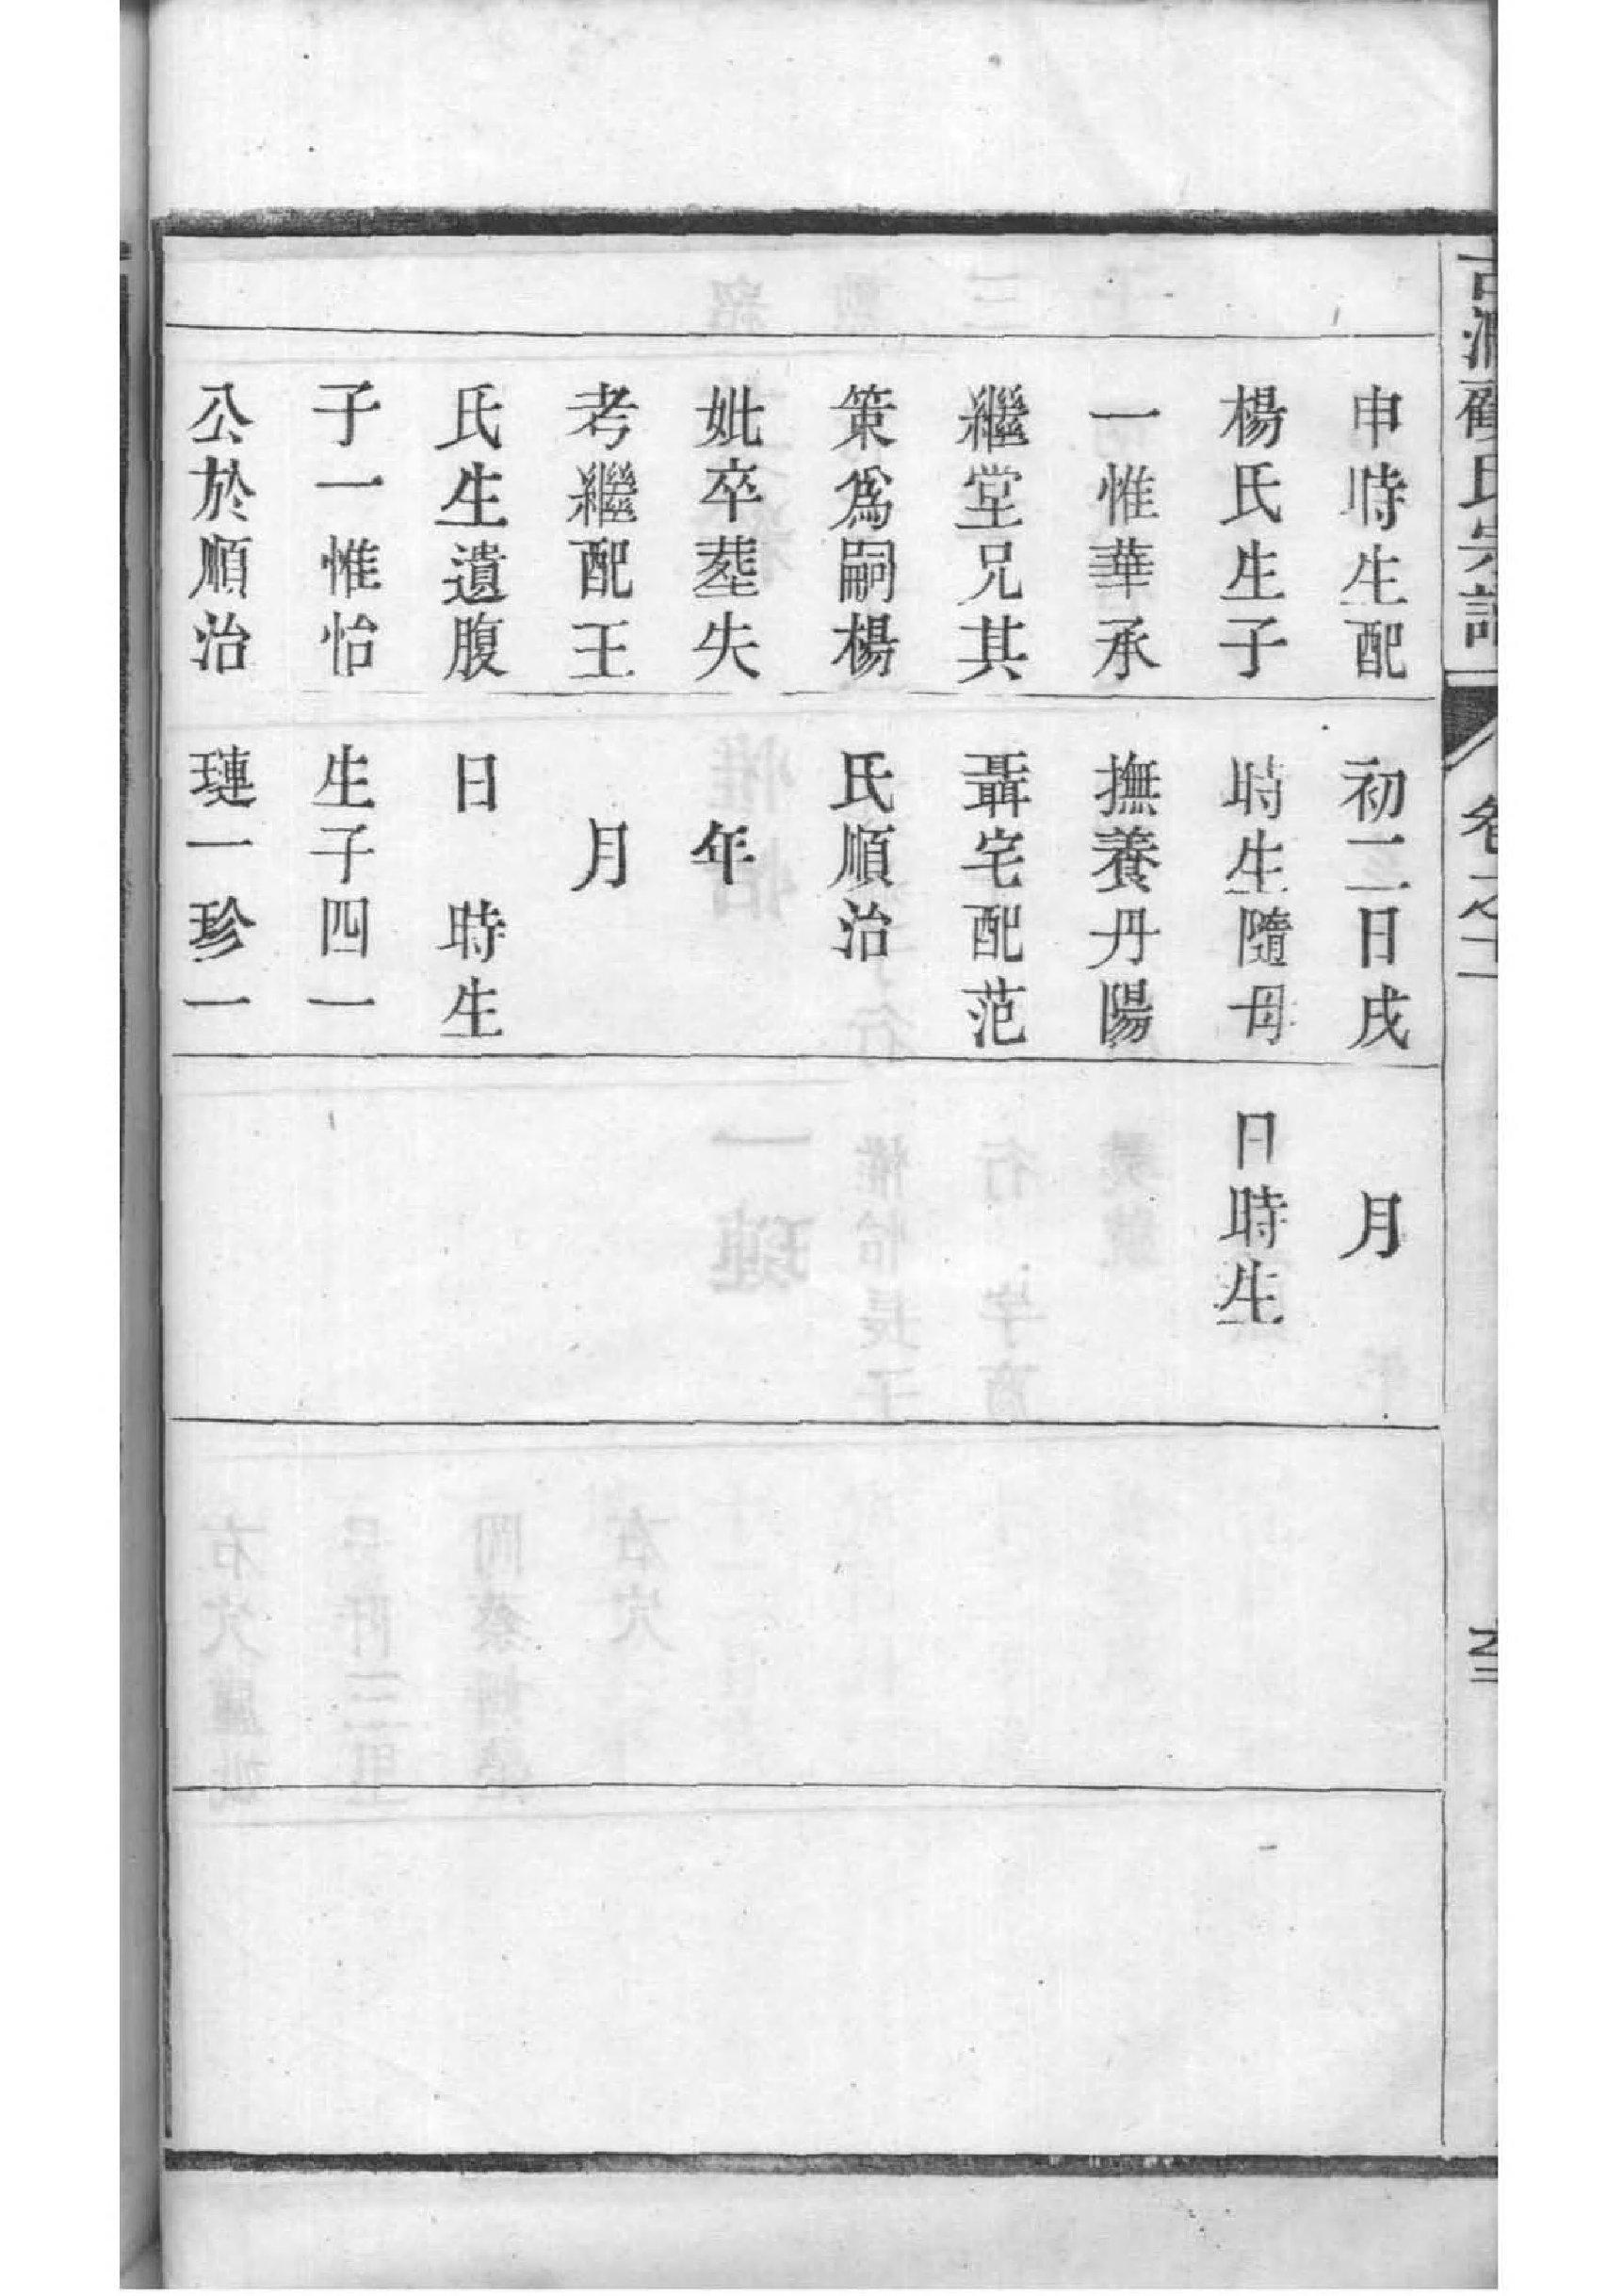 氏宗譜
卷之十
申時生配
楊氏生子
一惟華承
繼堂兄其
策爲嗣楊
妣卒塟失
考繼配王
氏生遺腹
子一惟怡
公於順治
初二日戌
時生隨母
撫養丹陽
聶宅配范
氏順治
年
月
日 時生
生子四一
璉一珍一
月
日時生